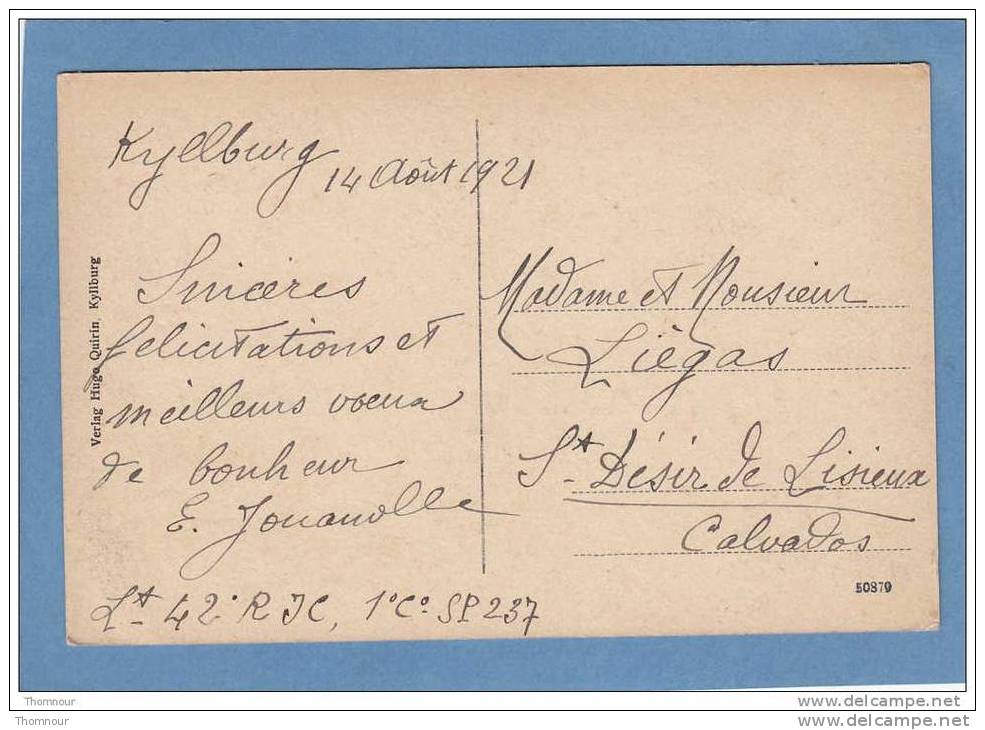 Kyllburg
14 Août 1921
Sincères
félicitations et
meilleurs voeux
de bonheur
E. Jouanolle
Lt 42° R I C, 1° C° SP 237
Madame et Monsieur
Liégas
St Désir de Lisieux
Calvados
Verlag Hugo Quirin, Kyllburg
50879
Thomnour
delcampe.net
Thomnour
www.delcampe.net